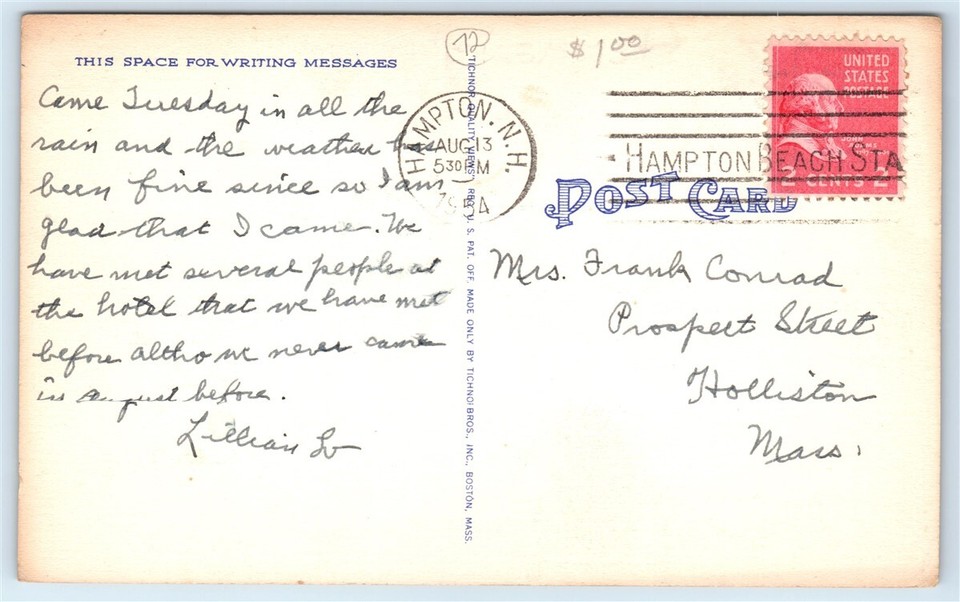 12
$1.00
THIS SPACE FOR WRITING MESSAGES
Came Tuesday in all the
rain and the weather has
been fine since so I am
glad that I came. We
have met several people at
the hotel that we have met
before altho we never came
in August before.
Lillian
TICHNOR QUALITY VIEWS REG. U. S. PAT. OFF. MADE ONLY BY TICHNOR BROS., INC., BOSTON, MASS.
HAMPTON, N.H.
AUG 13
5 30 PM
1954
HAMPTON BEACH STA
UNITED
STATES
POSTAGE
JOHN
ADAMS
2 CENTS 2
POST CARD
Mrs. Frank Conrad
Prospect Street
Holliston
Mass.